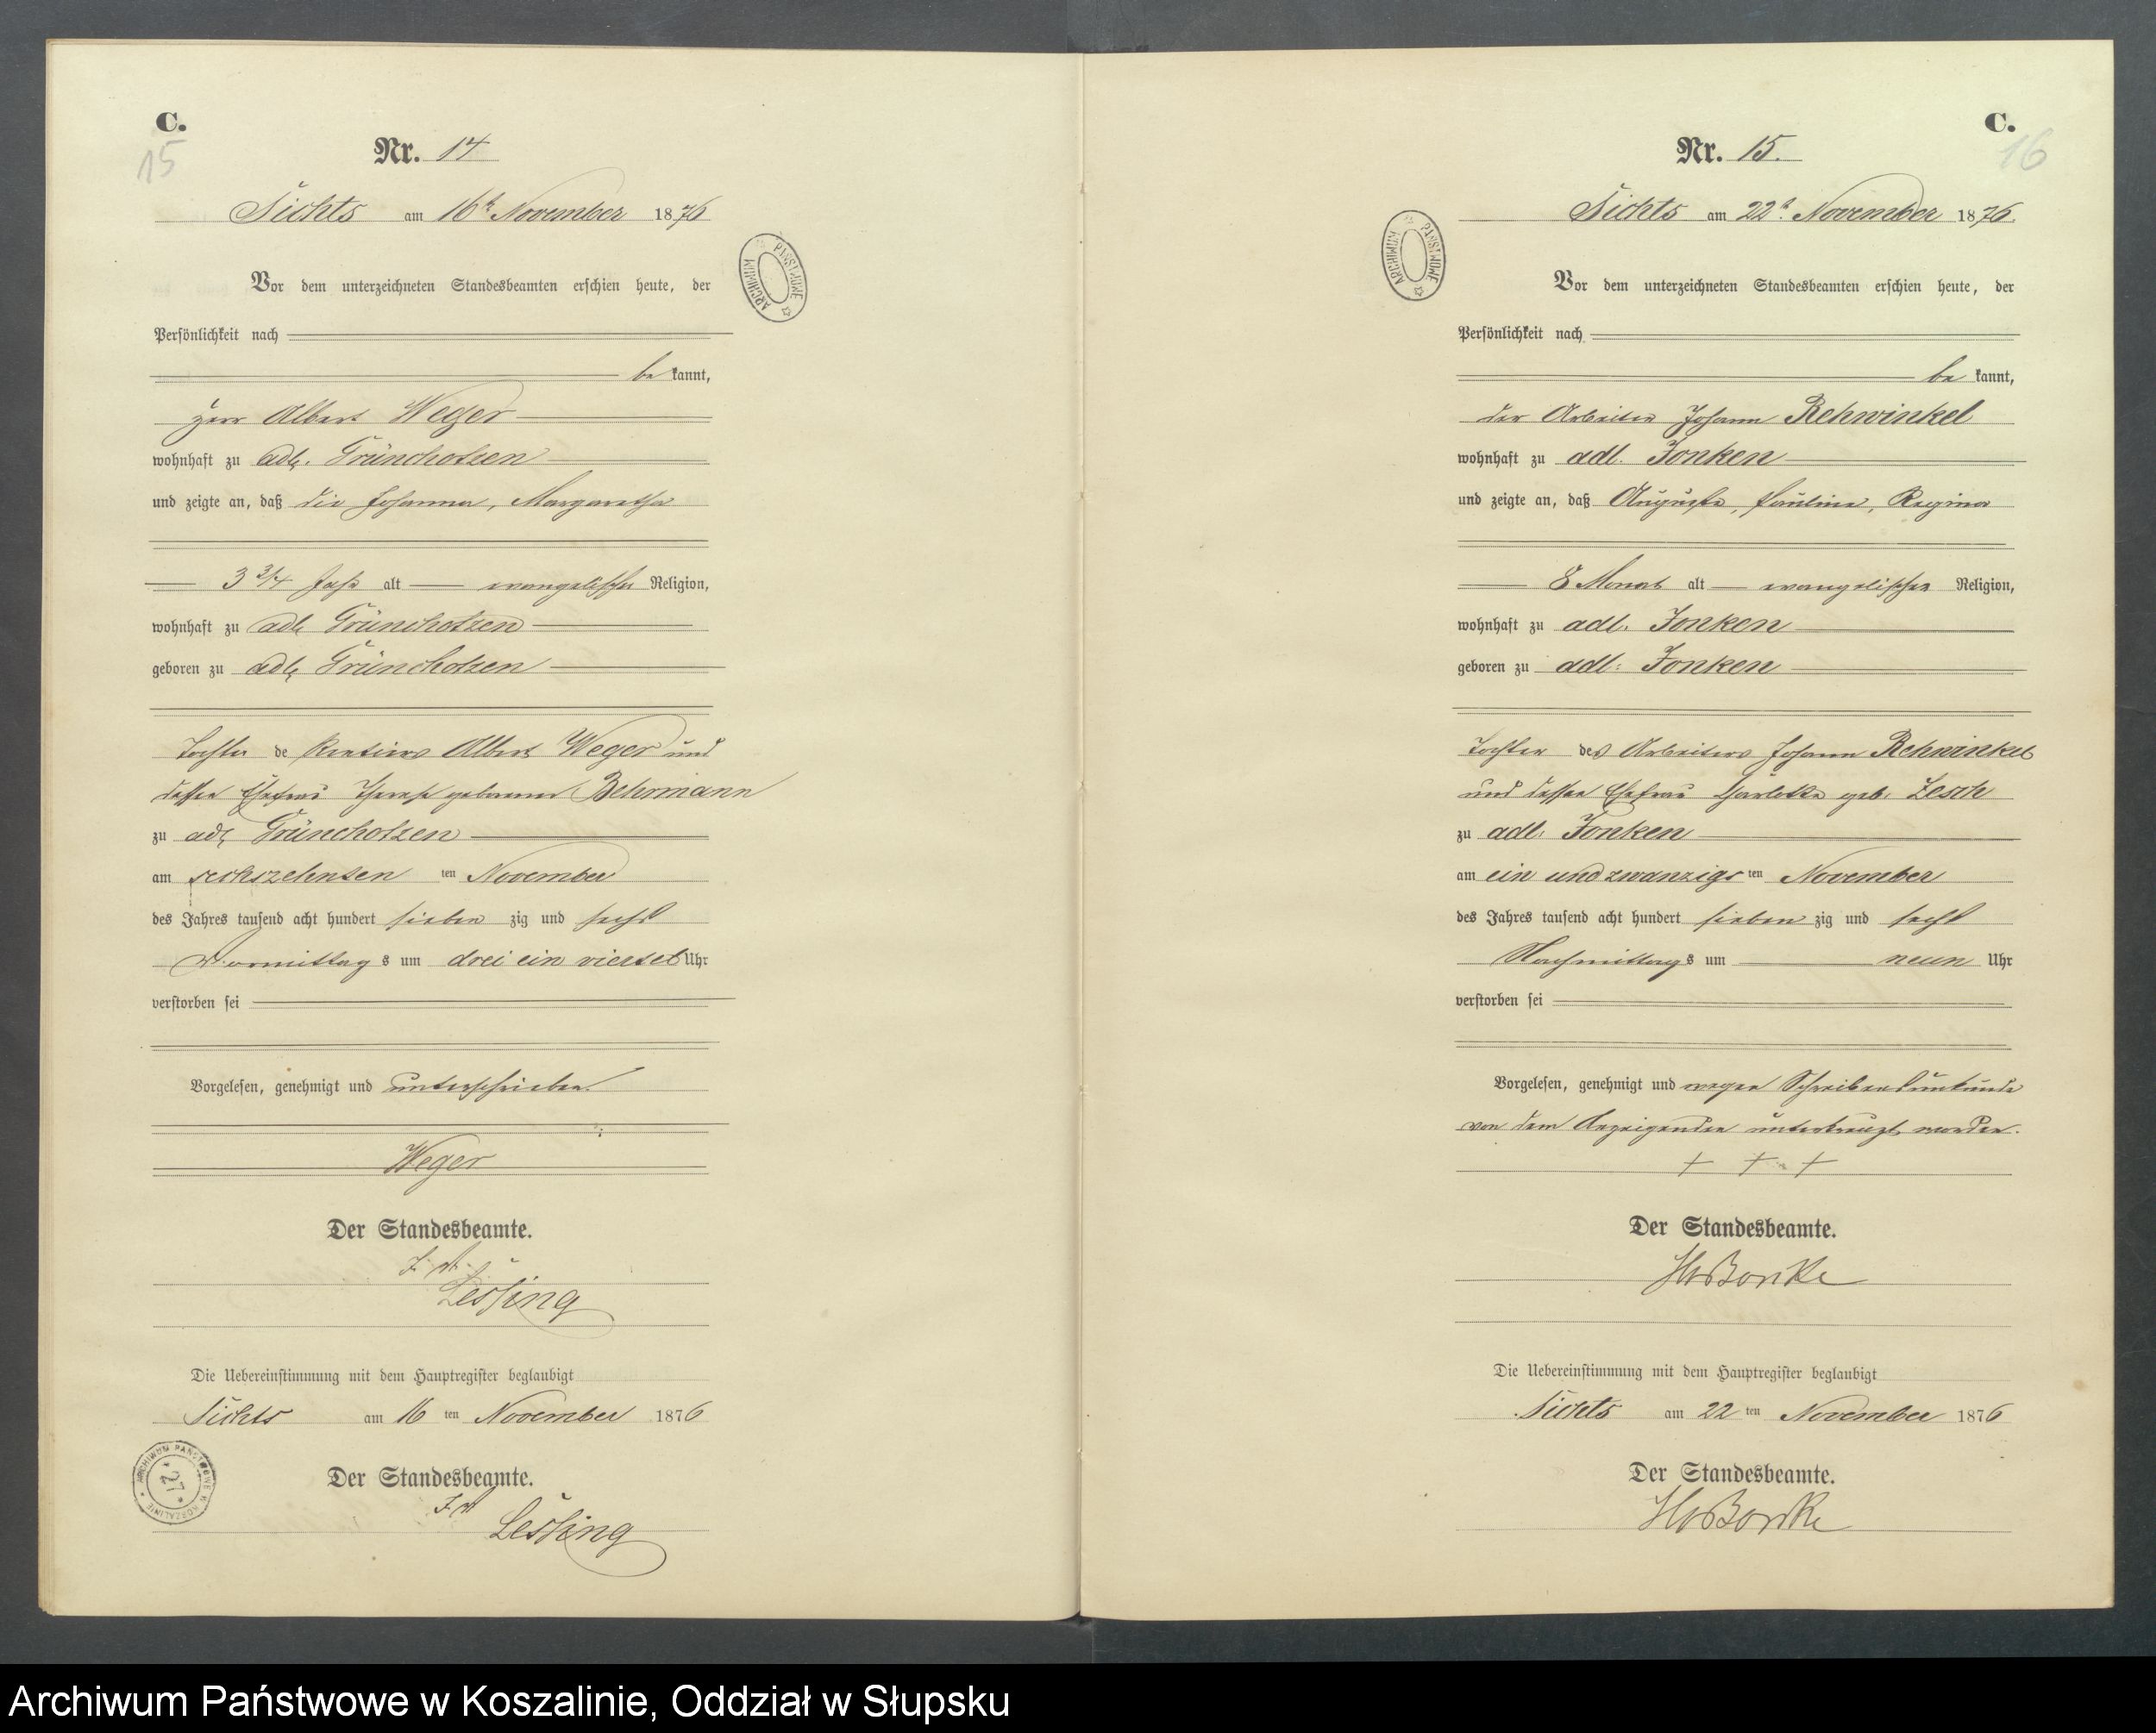 C.
15
Nr. 14
Sichts am 16t November 1876
Vor dem unterzeichneten Standesbeamten erschien heute, der
Persönlichkeit nach
be kannt,
Herr Albert Weger
wohnhaft zu adl. Grünchotzen
und zeigte an, daß die Johanna, Margaretha
3 3/4 Jahr alt evangelischer Religion,
wohnhaft zu adl. Grünchotzen
geboren zu adl. Grünchotzen
Tochter de Rentiers Albert Weger und
dessen Ehefrau Therese geborene Behrmann
zu adl. Grünchotzen
am sechszehnten ten November
des Jahres tausend acht hundert sieben zig und sechs
Vormittag s um drei ein viertel Uhr
verstorben sei
Vorgelesen, genehmigt und unterschrieben
Weger
Der Standesbeamte.
Lessing
Die Uebereinstimmung mit dem Hauptregister beglaubigt
Sichts am 16 ten November 1876
Der Standesbeamte.
Lessing
ARCHIWUM PAŃSTWOWE
ARCHIWUM PAŃSTWOWE W KOSZALINIE
27
C.
16
Nr. 15.
Sichts am 22t November 1876.
Vor dem unterzeichneten Standesbeamten erschien heute, der
Persönlichkeit nach
be kannt,
der Arbeiter Johann Rehwinkel
wohnhaft zu adl. Jonken
und zeigte an, daß Auguste, Pauline, Regina
8 Monat alt evangelischer Religion,
wohnhaft zu adl. Jonken
geboren zu adl. Jonken
Tochter des Arbeiters Johann Rehwinkel
und dessen Ehefrau Charlotte geb. Lesch
zu adl. Jonken
am ein und zwanzigs ten November
des Jahres tausend acht hundert sieben zig und sechs
Nachmittag s um neun Uhr
verstorben sei
Vorgelesen, genehmigt und wegen Schreibensunkunde
von dem Anzeigenden unterkreuzt worden.
+ + +
Der Standesbeamte.
Die Uebereinstimmung mit dem Hauptregister beglaubigt
Sichts am 22 ten November 1876
Der Standesbeamte.
ARCHIWUM PAŃSTWOWE
Archiwum Państwowe w Koszalinie, Oddział w Słupsku